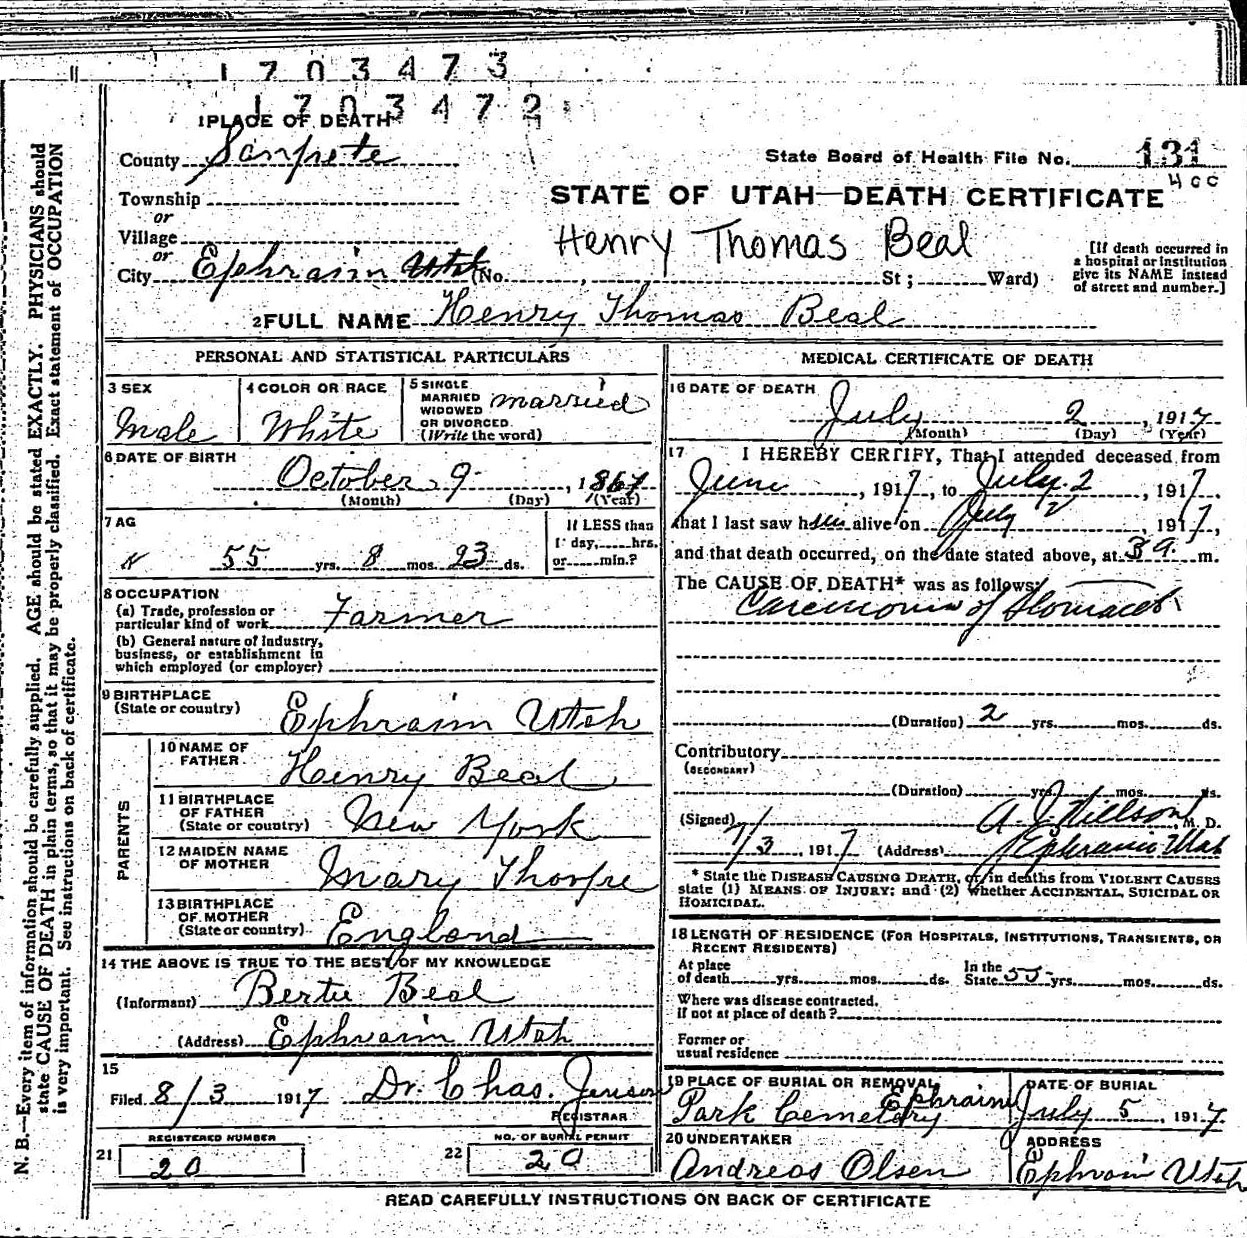 1703473
1703472
1 PLACE OF DEATH
County Sanpete
State Board of Health File No. 131
400
Township
or
Village
or
City Ephraim Utah (No. , St ; Ward)
STATE OF UTAH—DEATH CERTIFICATE
Henry Thomas Beal
[If death occurred in
a hospital or institution
give its NAME instead
of street and number.]
2 FULL NAME Henry Thomas Beal
PERSONAL AND STATISTICAL PARTICULARS
3 SEX
Male
4 COLOR OR RACE
White
5 SINGLE
MARRIED
WIDOWED
OR DIVORCED
(Write the word)
married
6 DATE OF BIRTH
October 9 , 1861
(Month) (Day) (Year)
7 AG
55 yrs. 8 mos. 23 ds.
If LESS than
1 day, hrs.
or min.?
8 OCCUPATION
(a) Trade, profession or
particular kind of work Farmer
(b) General nature of industry,
business, or establishment in
which employed (or employer)
9 BIRTHPLACE
(State or country) Ephraim Utah
PARENTS
10 NAME OF
FATHER Henry Beal
11 BIRTHPLACE
OF FATHER
(State or country) New York
12 MAIDEN NAME
OF MOTHER Mary Thorpe
13 BIRTHPLACE
OF MOTHER
(State or country) England
14 THE ABOVE IS TRUE TO THE BEST OF MY KNOWLEDGE
(Informant) Bertie Beal
(Address) Ephraim Utah
15
Filed 8/3 1917 Dr. Chas. Jensen
REGISTRAR
REGISTERED NUMBER
21 20
NO. OF BURIAL PERMIT
22 20
MEDICAL CERTIFICATE OF DEATH
16 DATE OF DEATH
July 2 , 1917
(Month) (Day) (Year)
17 I HEREBY CERTIFY, That I attended deceased from
June , 1917, to July 2 , 1917,
that I last saw him alive on July 2 , 1917,
and that death occurred, on the date stated above, at 3 a. m.
The CAUSE OF DEATH* was as follows:
Carcinoma of Stomach
(Duration) 2 yrs. mos. ds.
Contributory
(SECONDARY)
(Duration) yrs. mos. ds.
(Signed) A. J. Nielson, M. D.
7/3 , 1917 (Address) Ephraim Utah
* State the DISEASE CAUSING DEATH, or, in deaths from VIOLENT CAUSES
state (1) MEANS OF INJURY; and (2) whether ACCIDENTAL, SUICIDAL OR
HOMICIDAL.
18 LENGTH OF RESIDENCE (FOR HOSPITALS, INSTITUTIONS, TRANSIENTS, OR
RECENT RESIDENTS)
At place
of death yrs. mos. ds.
In the
State 55 yrs. mos. ds.
Where was disease contracted.
if not at place of death?
Former or
usual residence
19 PLACE OF BURIAL OR REMOVAL
Ephraim
Park Cemetery
DATE OF BURIAL
July 5 , 1917
20 UNDERTAKER
Andreas Olsen
ADDRESS
Ephraim Utah
READ CAREFULLY INSTRUCTIONS ON BACK OF CERTIFICATE
N. B.—Every item of information should be carefully supplied. AGE should be stated EXACTLY. PHYSICIANS should
state CAUSE OF DEATH in plain terms, so that it may be properly classified. Exact statement of OCCUPATION
is very important. See instructions on back of certificate.